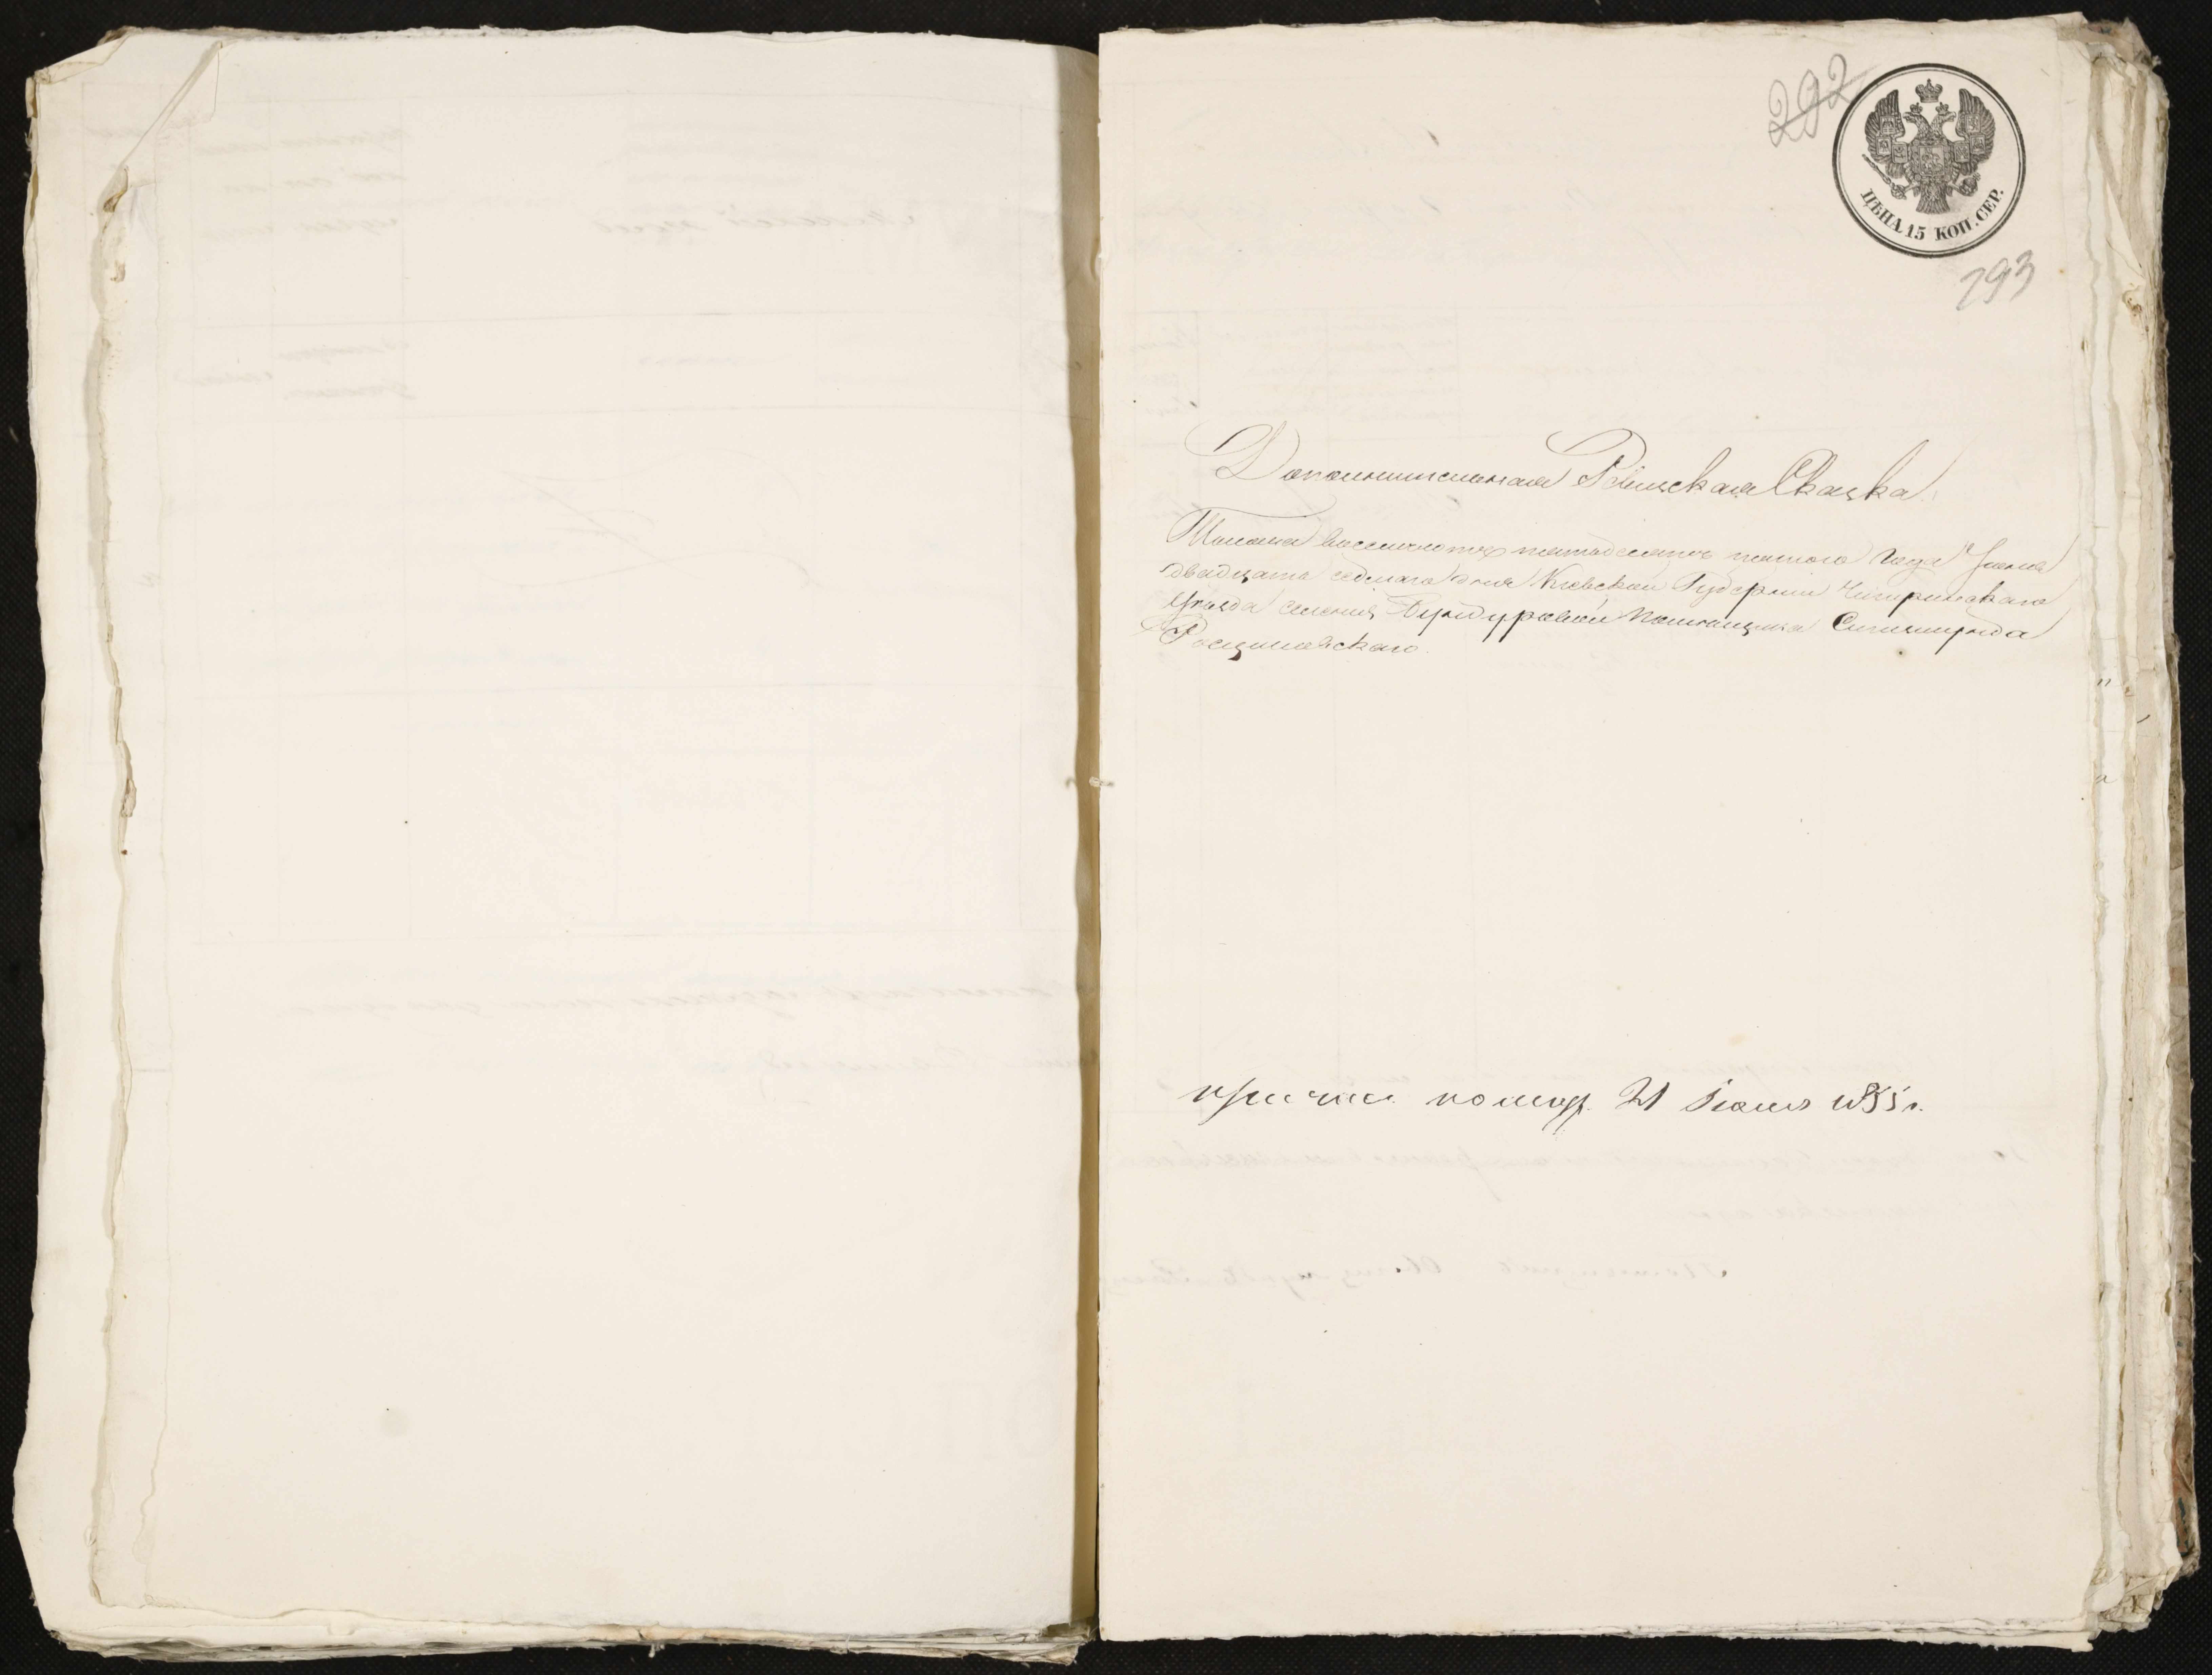 292
ЦѢНА 15 КОП. СЕР.
293
Дополнительная Ревизская Сказка
Тысяча восемьсотъ пятьдесятъ пятого года Іюня
двадцать седмаго дня Кіевской Губерніи Чигиринскаго
Уѣзда селенія Бундуровки Помѣщика Сигизмунда
Росцишевскаго.
21 Іюля 1855 г.